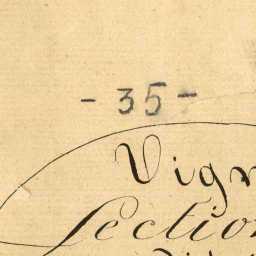 - 35 -
Vign
Section